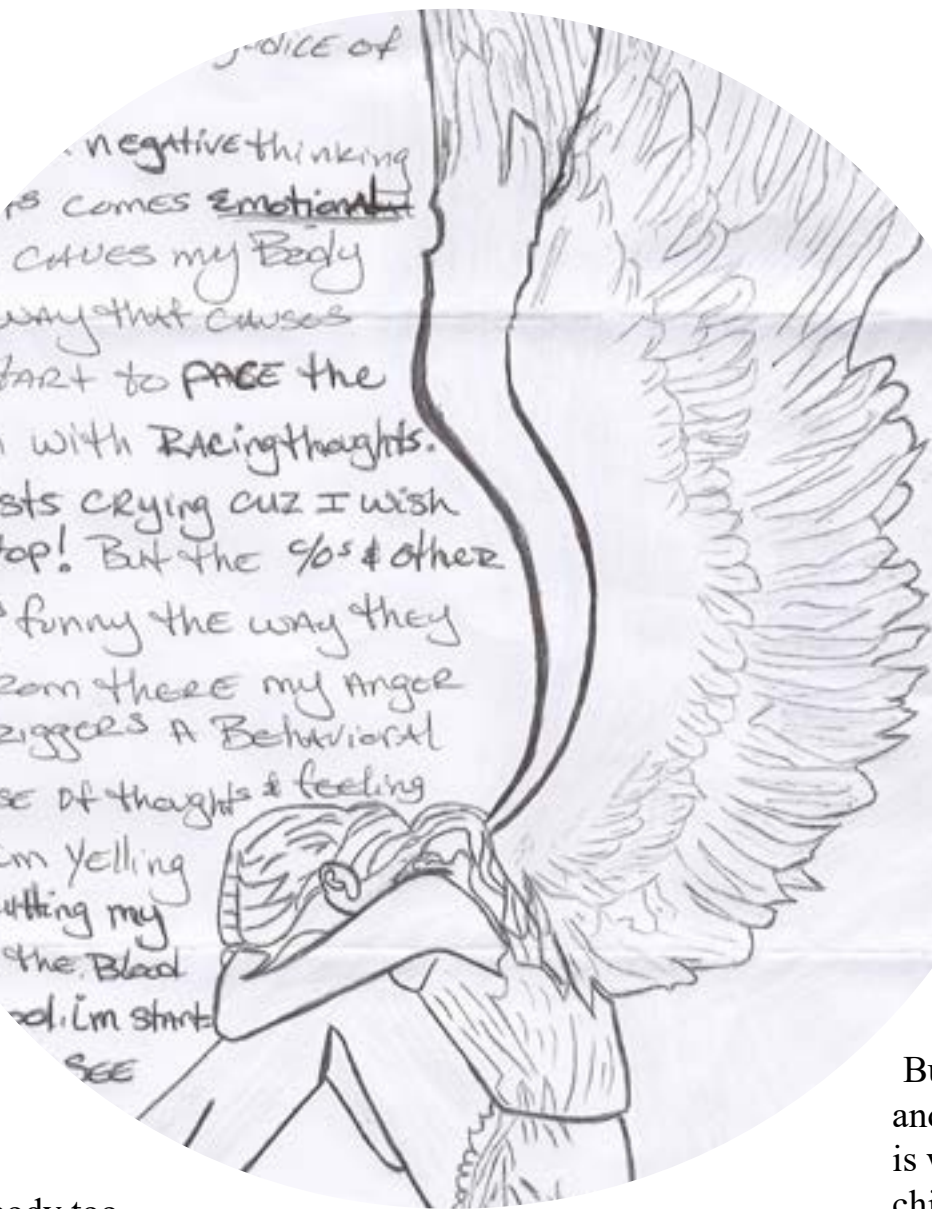 judice of
negative thinking
rs comes Emotional
CAUES my Body
way that causes
tART to PACE the
with RAcing thoughts.
sts CRying cuz I wish
top! But the c/os & other
funny the way they
Rom there my Anger
RiggeRs A BehAvioral
se of thoughts & feeling
i'm Yelling
utting my
the Blood
ool. i'm start
SEE
Bu
and
is v
chi
ody too